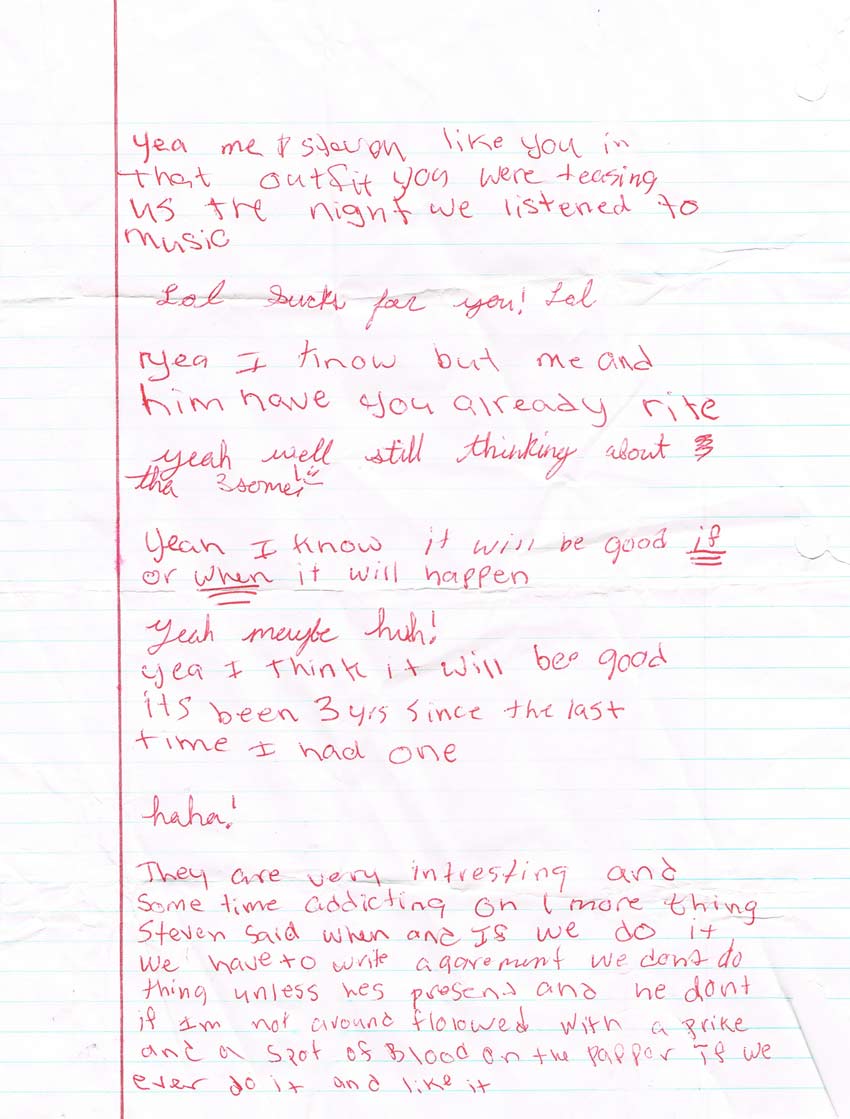 yea me & steven like you in
that outfit you were teasing
us the night we listened to
music
Lol Sucks for you! Lol
yea I know but me and
him have you already rite
yeah well still thinking about
tha 3some!
Yeah I know it will be good if
or when it will happen
Yeah maybe huh!
yea I think it will bee good
its been 3 yrs since the last
time I had one
haha!
They are very intresting and
Some time addicting on 1 more thing
Steven said when and If we do it
we have to write a agorement we dont do
thing unless hes present and he dont
if Im not around flolowed with a prike
and a spot of Blood on the papper If we
ever do it and like it